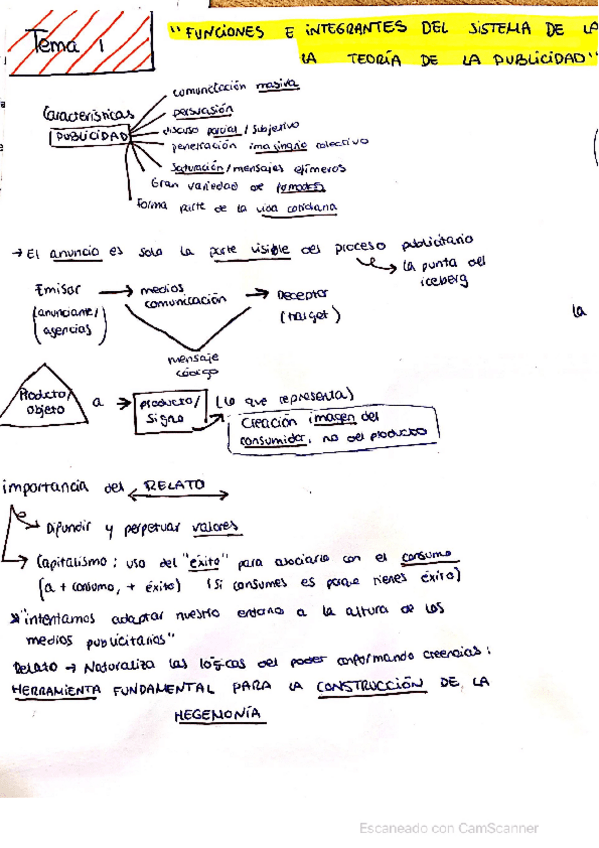 Tema 1
"FUNCIONES E INTEGRANTES DEL SISTEMA DE LA
LA TEORÍA DE LA PUBLICIDAD"
Características
PUBLICIDAD
comunicación masiva
persuasión
discurso parcial / subjetivo
penetración imaginario colectivo
saturación/mensajes efímeros
Gran variedad de formatos
Forma parte de la vida cotidiana
→ El anuncio es solo la parte visible del proceso publicitario
↳ la punta del
iceberg
Emisor → medios → Receptor
comunicación
(anunciante/
agencias)
(target)
la
mensaje
código
Producto/
Objeto
a → producto/
signo
(lo que representa)
Creación imagen del
consumidor, no del producto
importancia del RELATO
↳ Difundir y perpetuar valores
→ Capitalismo: uso del "éxito" para asociarlo con el consumo
(a + consumo, + éxito) (Si consumes es porque tienes éxito)
"intentamos adaptar nuestro entorno a la altura de los
medios publicitarios"
Relato → Naturaliza las lógicas del poder conformando creencias:
HERRAMIENTA FUNDAMENTAL PARA LA CONSTRUCCIÓN DE LA
HEGEMONÍA
Escaneado con CamScanner